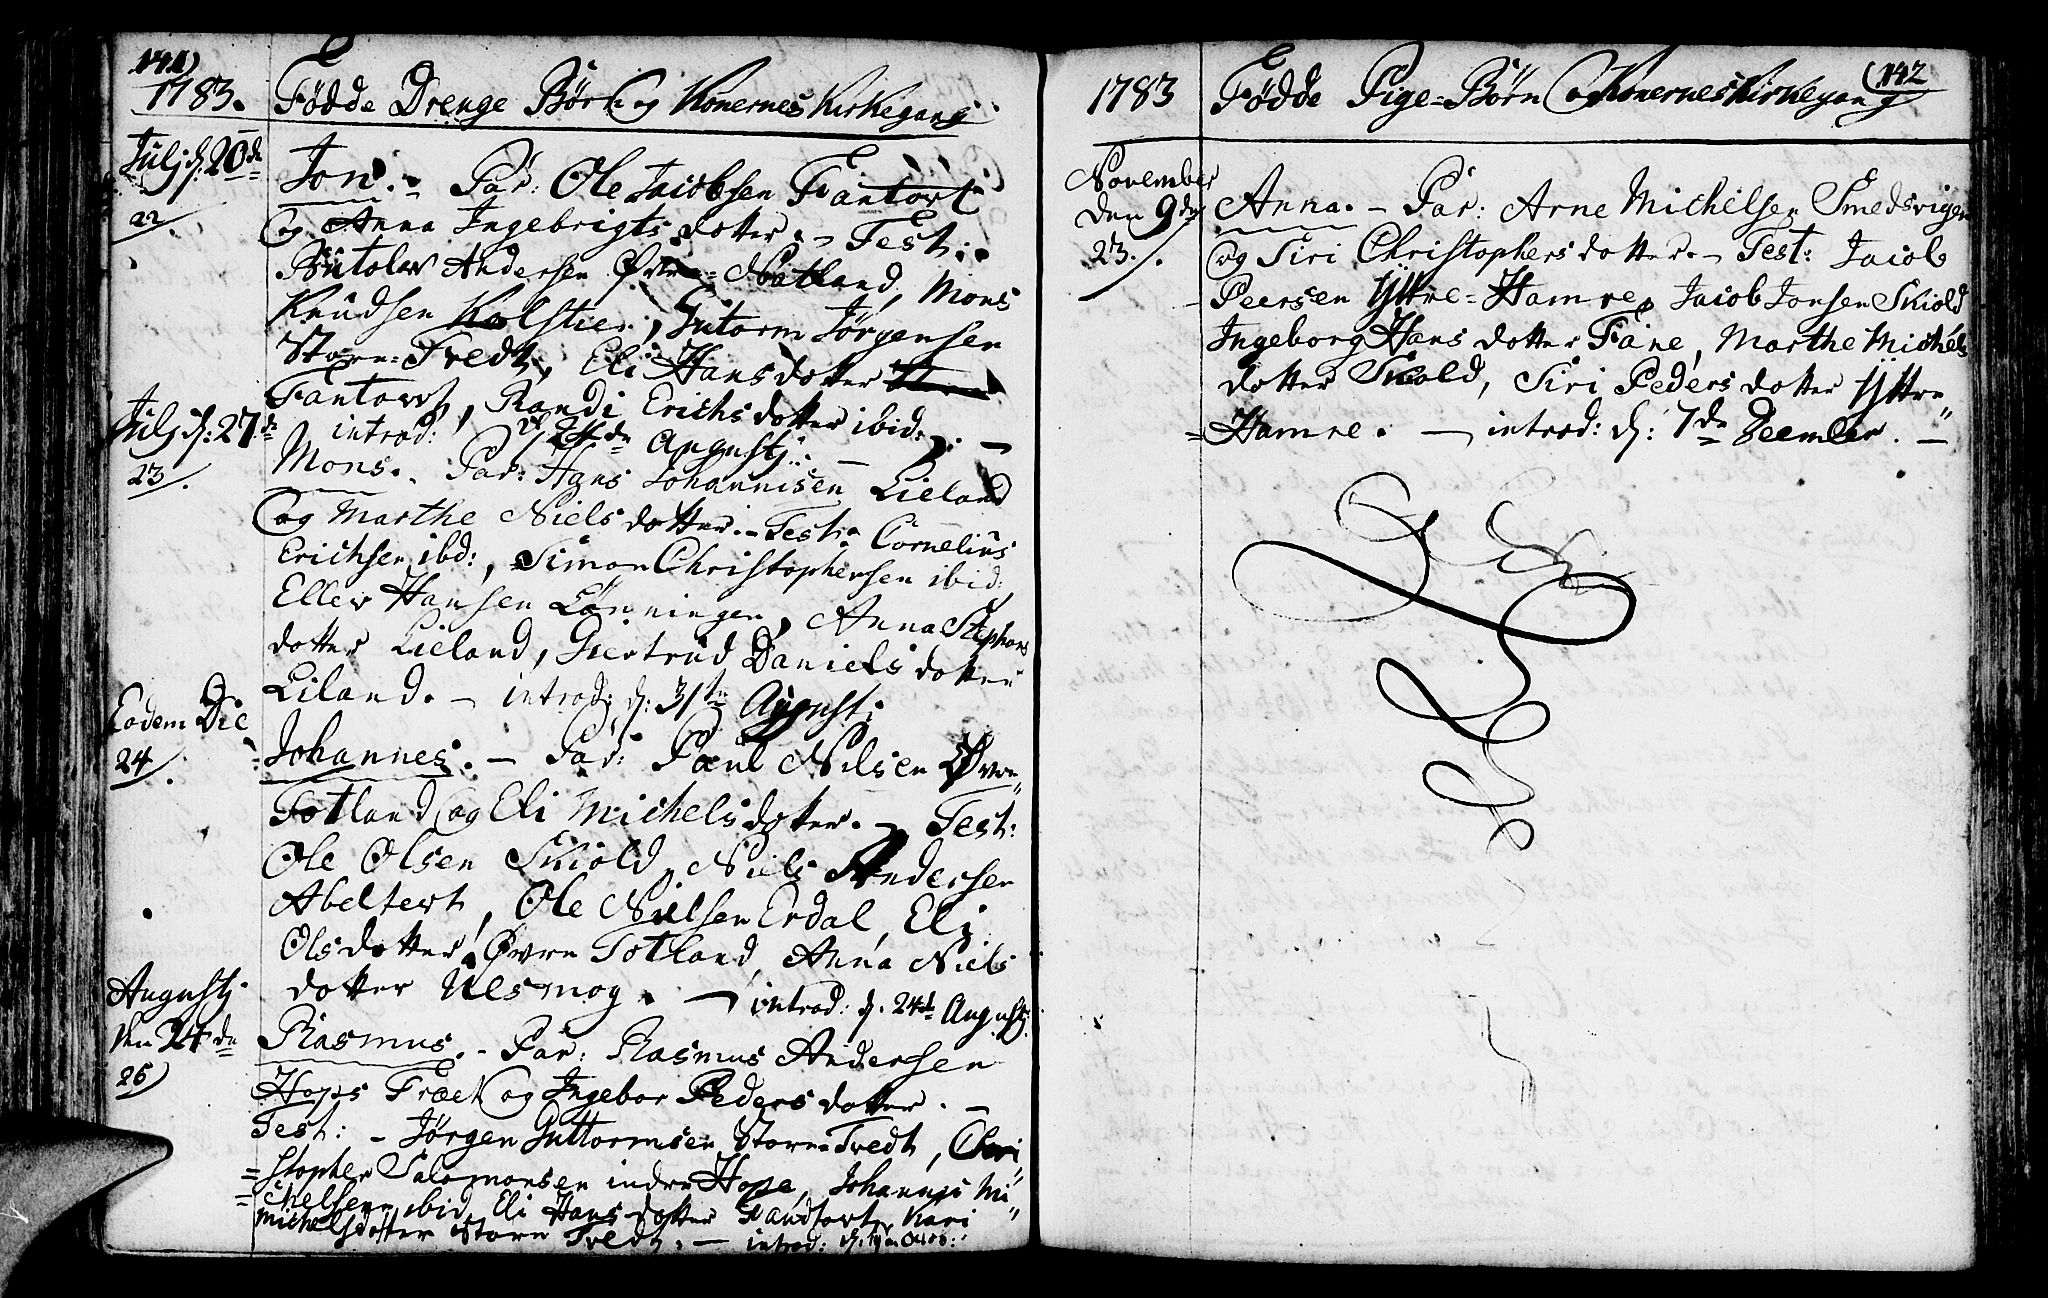 141)
1783. Fødde Drenge Børn og Konernes Kirkegang
Julj d: 20de
22/.
Jon. - Par: Ole Jacobsen Fantoft
og Anna Ingebrigts dotter. - Test:
Botolev Andersen Øvre=Natland, Mons
Knudsen Kalstien, Gutorm Jørgensen
Store=Tvedt, Eli Hans dotter
Fantoft, Randi Erichs dotter ibid: -
introd: d: 24de Augustj. -
Julj d: 27de
23/.
Mons. Par: Hans Johannisen Lieland
og Marthe Niels dotter. - Test: Cornelius
Erichsen ibd:, Simon Christophersen ibid:
Ellev Hansen Lønningen, Anna Stephens
dotter Lieland, Giertrud Daniels dotter
Liland. - introd: d: 31te Augusti
Eodem Die
24/.
Johannes. - Par: Poul Nilsen Øvre
Totland og Eli Michels dotter. - Test:
Ole Olsen Skiold, Niels Andersen
Abeltevt, Ole Nielsen Erdal, Eli
Ols dotter Øvre Totland, Anna Niels
dotter Ulsmog. - introd: d. 24de Augustj
Augustj
den 24de
25)
Rasmus. - Par: Rasmus Andersen
Hops Træet og Ingebor Peders dotter. -
Test: - Jørgen Guttormsen Store=Tvedt, Chri
=stopher Salomonsen indre Hope, Johannes Mi
=chelsen ibid, Eli Hans dotter Fandtoft, Kari
Michelsdotter Store Tvedt. - introd: d:
1783 Fødde Pige=Børn og Konernes Kirkegang (142
November
den 9de
23./.
Anna. - Par: Arne Michelsen Smedsvigen
og Siri Christophers dotter. - Test: Jacob
Peersen Yttre=Hamre, Jacob Jonsen Skiold
Ingeborg Hans dotter Fane, Marthe Michels
dotter Skiold, Siri Peders dotter Yttre
=Hamre. - introd: d: 7de Decembr. -